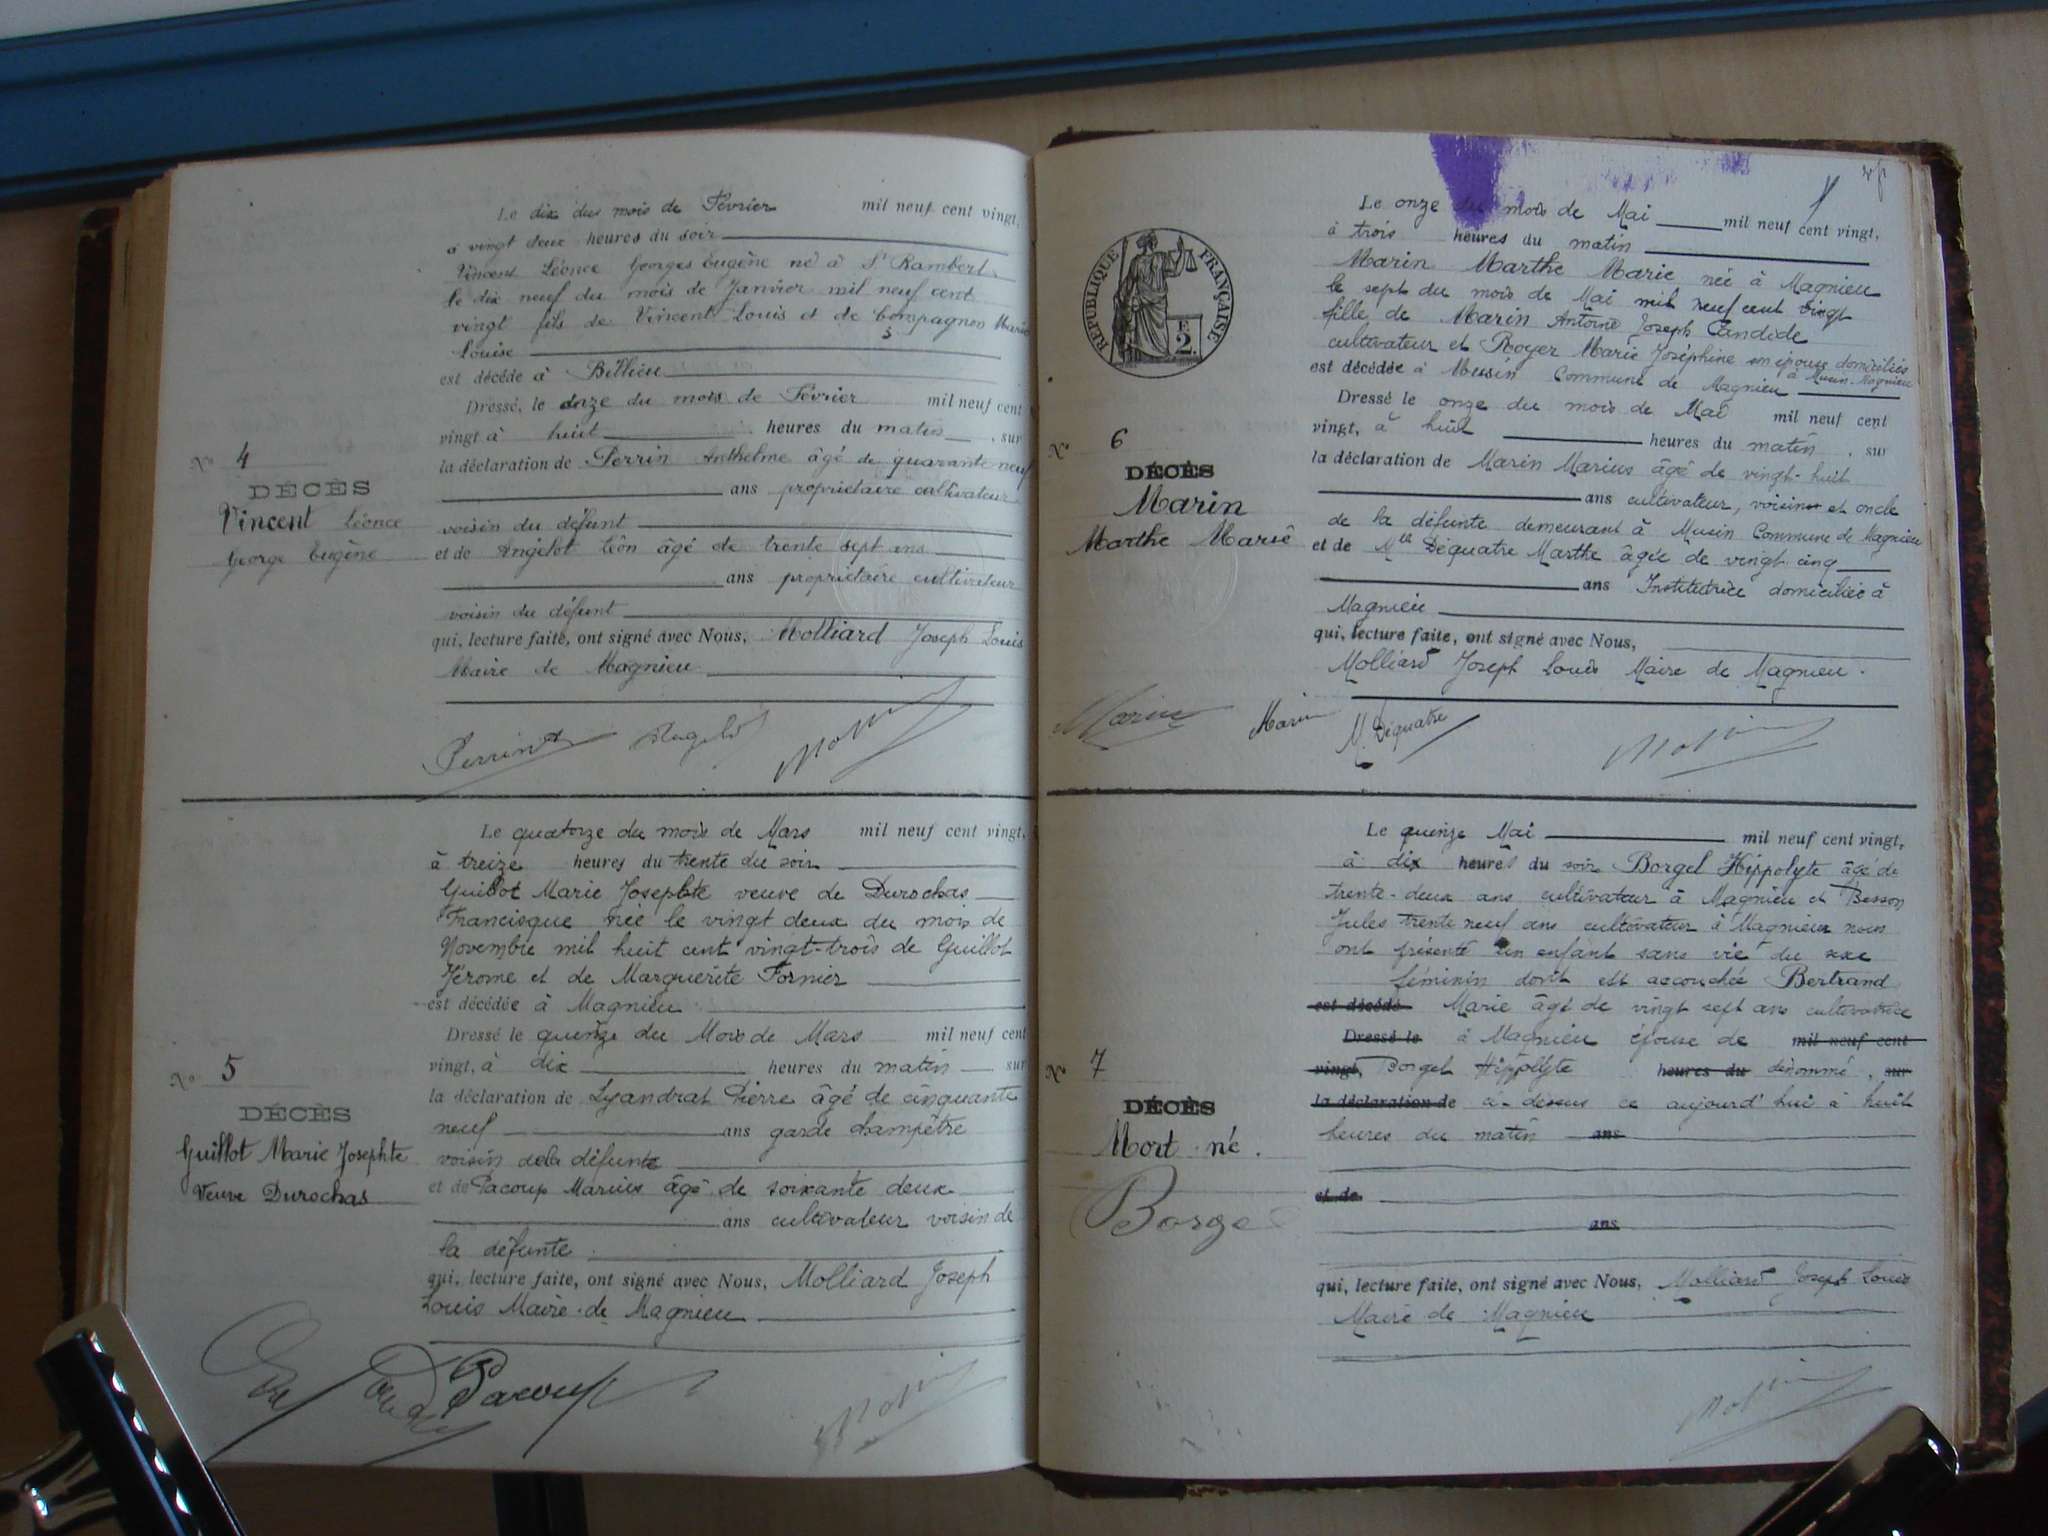 Le dix du mois de Février mil neuf cent vingt,
à vingt deux heures du soir
Vincent Léonce Georges Eugène né à St Rambert
le dix neuf du mois de Janvier mil neuf cent
vingt fils de Vincent Louis et de Compagnon Marie
Louise
est décédé à Billieu
Dressé, le onze du mois de Février mil neuf cent
vingt à huit heures du matin, sur
la déclaration de Perrin Anthelme âgé de quarante neuf
ans propriétaire cultivateur
voisin du défunt
et de Angelot Léon âgé de trente sept ans
ans propriétaire cultivateur
voisin du défunt
qui, lecture faite, ont signé avec Nous, Molliard Joseph Louis
Maire de Magnieu
No 4
DÉCÈS
Vincent Léonce
George Eugène
Perrin A
Le quatorze du mois de Mars mil neuf cent vingt,
à treize heures du trente du soir
Guillot Marie Josephte veuve de Durochas
Francisque née le vingt deux du mois de
Novembre mil huit cent vingt-trois de Guillot
Jérome et de Marguerite Fornier
est décédée à Magnieu
Dressé le quinze du Mois de Mars mil neuf cent
vingt, à dix heures du matin sur
la déclaration de Lyandrat Pierre âgé de cinquante
neuf ans garde champêtre
voisin de la défunte
et de Pacoup Marius âgé de soixante deux
ans cultivateur voisin de
la défunte
qui, lecture faite, ont signé avec Nous, Molliard Joseph
Louis Maire de Magnieu
No 5
DÉCÈS
Guillot Marie Josephte
Veuve Durochas
Pacoup
RÉPUBLIQUE FRANÇAISE
E
2
Le onze du mois de Mai mil neuf cent vingt,
à trois heures du matin
Marin Marthe Marie née à Magnieu
le sept du mois de Mai mil neuf cent vingt
fille de Marin Antoine Joseph Candide
cultivateur et Royer Marie Joséphine son épouse domiciliés
à Musin-Magnieu
est décédée à Musin Commune de Magnieu
Dressé le onze du mois de Mai mil neuf cent
vingt, à huit heures du matin, sur
la déclaration de Marin Marius âgé de vingt-huit
ans cultivateur, voisin et oncle
de la défunte demeurant à Musin Commune de Magnieu
et de Mlle Déquatre Marthe âgée de vingt cinq
ans Institutrice domiciliée à
Magnieu
qui, lecture faite, ont signé avec Nous,
Molliard Joseph Louis Maire de Magnieu.
No 6
DÉCÈS
Marin
Marthe Marie
Marin Marin M. Déquatre
Le quinze Mai mil neuf cent vingt,
à dix heures du soir Borgel Hippolyte âgé de
trente-deux ans cultivateur à Magnieu et Besson
Jules trente neuf ans cultivateur à Magnieu nous
ont présenté un enfant sans vie du sexe
féminin dont est accouchée Bertrand
est décédé Marie âgé de vingt sept ans cultivatrice
Dressé le à Magnieu épouse de mil neuf cent
vingt, Borgel Hippolyte heures du dénommé, sur
la déclaration de ci-dessus ce aujourd'hui à huit
heures du matin ans
et de
ans
qui, lecture faite, ont signé avec Nous, Molliard Joseph Louis
Maire de Magnieu
No 7
DÉCÈS
Mort-né.
Borgel